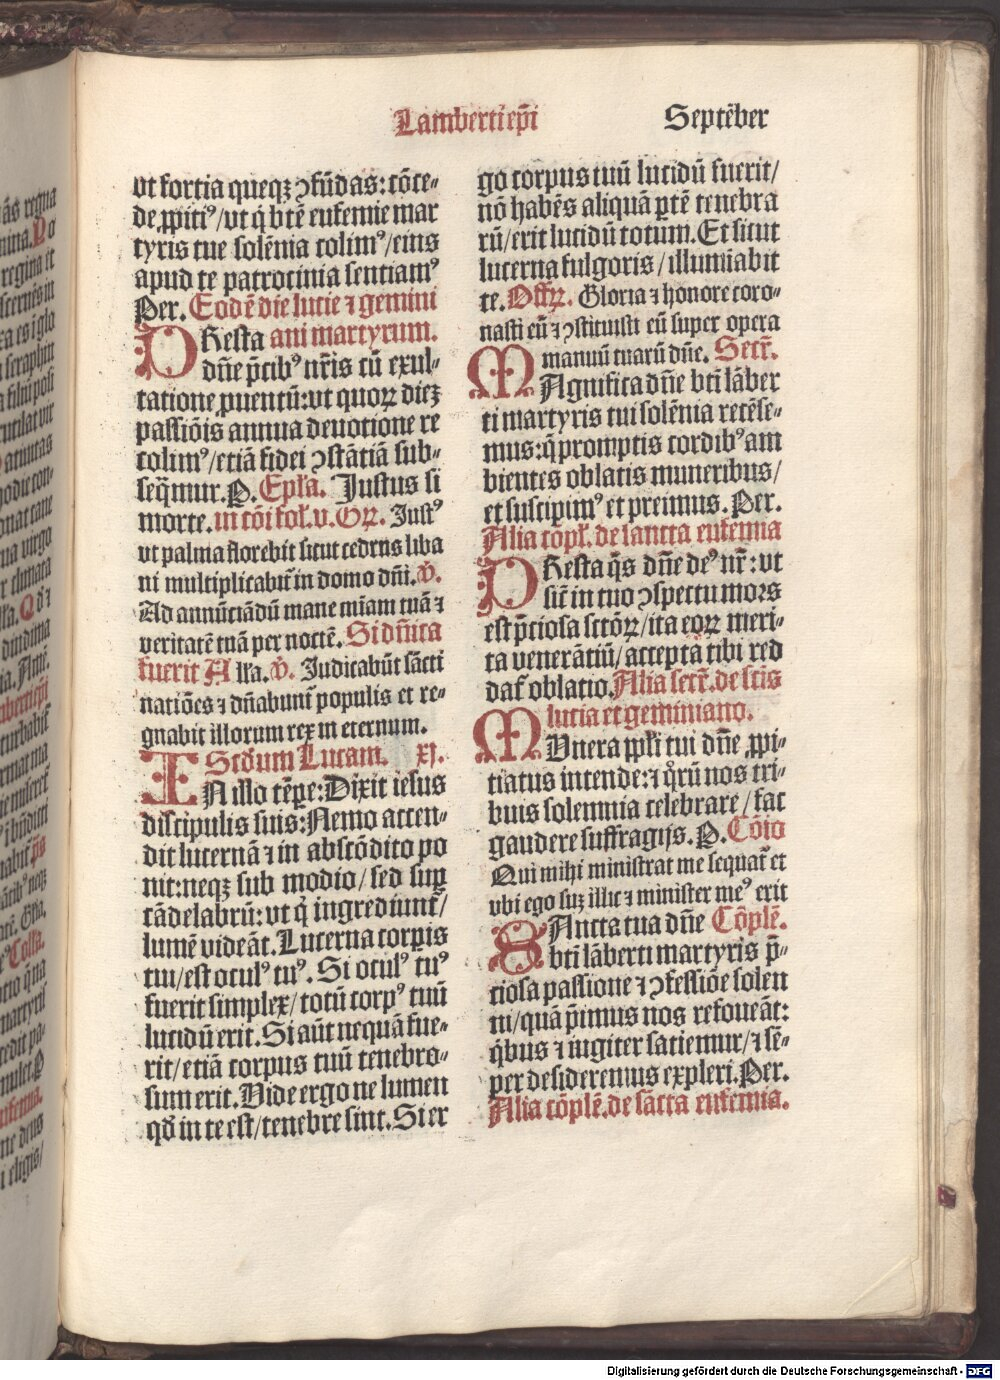 Lamberti ep̄i Septēber
vt fortia queqꝫ ↄfūdas: cōce⸗
de ꝓpitiꝰ/vt q̇ btē eufemie mar
tyris tue solēnia colimꝰ/eius
apud te patrocinia sentiamꝰ
Per. Eodē die lucie ⁊ gemini
PResta ani martyrum.
dn̄e p̄cibꝰ nr̄is cū exul⸗
tatione ꝓuentū: vt quoꝝ dieꝫ
passiōis annua deuotione re
colimꝰ/etiā fidei ↄstātiā sub⸗
seq̄mur. P. Epl̄a. Justus si
morte. in cōi fol. v. Gꝝ. Justꝰ
vt palma florebit sicut cedrus liba
ni multiplicabit᷑ in domo dn̄i. V̄.
Ad annūciādū mane miam tuā ⁊
veritatē tuā per noctē. Si dn̄ica
fuerit Alla. V̄. Judicabūt sācti
natiōes ⁊ dn̄abunt᷑ populis et re⸗
gnabit illorum rex in eternum.
Scd̄um Lucam. xj.
IN illo tēꝑe: Dixit iesus
discipulis suis: Nemo accen⸗
dit lucernā ⁊ in abscōdito po
nit: neqꝫ sub modio/sed suꝑ
cādelabrū: vt q̇ ingrediunt᷑/
lumē videāt. Lucerna corꝑis
tui/est oculꝰ tuꝰ. Si oculꝰ tuꝰ
fuerit simplex/totū corpꝰ tuū
lucidū erit. Si aūt nequā fue⸗
rit/etiā corpus tuū tenebro⸗
sum erit. Vide ergo ne lumen
qd̄ in te est/tenebre sint. Si er
go corpus tuū lucidū fuerit/
nō habēs aliquā ꝑtē tenebra
rū/erit lucidū totum. Et sicut
lucerna fulgoris/illumīabit
te. Offꝝ. Gloria ⁊ honore coro⸗
nasti eū ⁊ ↄstituisti eū super opera
manuū tuarū dn̄e. Secr̄.
MAgnifica dn̄e bt̄i lāber
ti martyris tui solēnia recēse⸗
mus: q̄ promptis cordibꝰ am
bientes oblatis muneribus/
et suscipimꝰ et preimus. Per.
Alia cōpl̄. de sancta eufemia
PResta q̄s dn̄e deꝰ nr̄: vt
sic̄ in tuo ↄspectu mors
est p̄ciosa sctōꝝ/ita eoꝝ meri⸗
ta venerātiū/accepta tibi red
dat᷑ oblatio. Alia secr̄. de sc̄tis
lucia et geminiano.
MUnera ppl̄i tui dn̄e ꝓpi⸗
tiatus intende: ⁊ q̇rū nos tri⸗
buis solemnia celebrare/fac
gaudere suffragijs. P. Cōio
Qui mihi ministrat me sequat᷑ et
vbi ego suꝫ illic ⁊ minister meꝰ erit
SAncta tua dn̄e Cōplē.
bt̄i lāberti martyris p̄⸗
ciosa passione ⁊ ↄfessiōe solen
ni/quā p̄imus nos refoueāt:
q̇bus ⁊ iugiter satiemur/⁊ sē⸗
per desideremus expleri. Per.
Alia cōplē. de sācta eufemia.
Digitalisierung gefördert durch die Deutsche Forschungsgemeinschaft - DFG